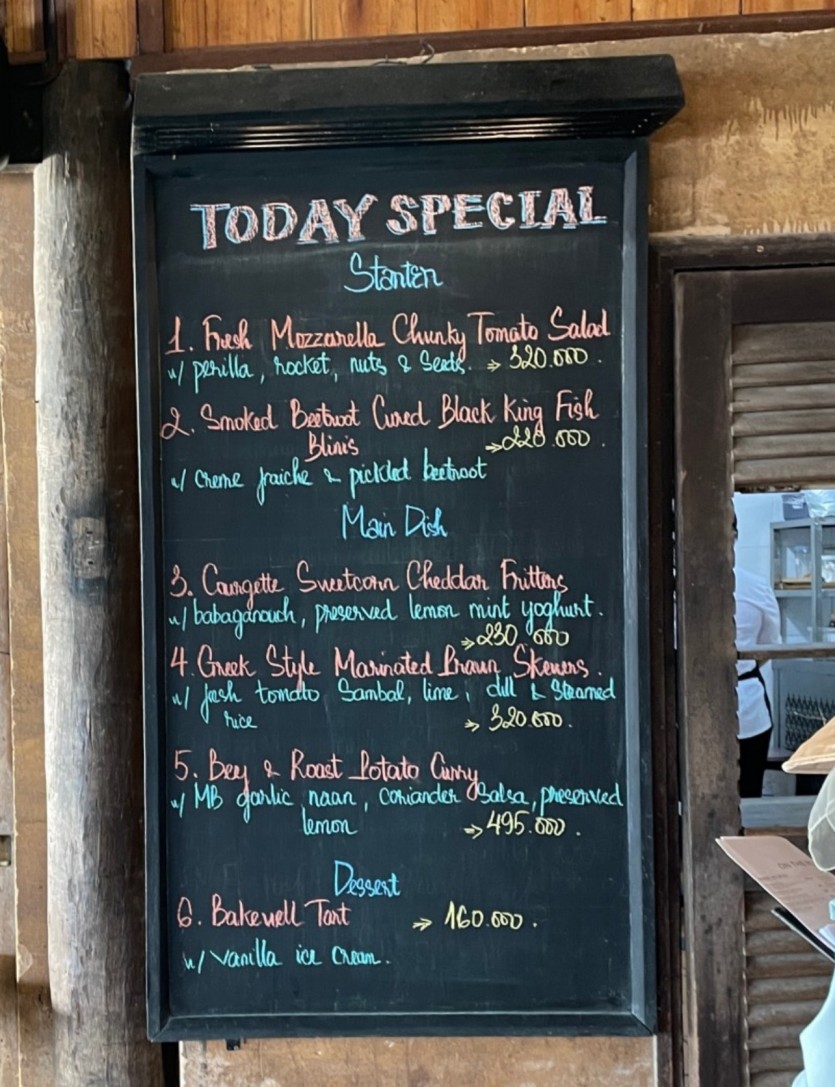 TODAY SPECIAL
Starter
1. Fresh Mozzarella Chunky Tomato Salad
w/ perilla, rocket, nuts & Seeds. → 320.000.
2. Smoked Beetroot Cured Black King Fish
Blinis → 220.000.
w/ Creme fraiche & pickled beetroot
Main Dish
3. Courgette Sweetcorn Cheddar Fritters
w/ babaganouch, preserved lemon mint yoghurt.
→ 230.000
4. Greek Style Marinated Prawn Skewers.
w/ fresh tomato Sambal, lime, dill & Steamed
rice → 320.000.
5. Beef & Roast Potato Curry
w/ MB garlic naan, coriander Salsa, preserved
lemon → 495.000.
Dessert
6. Bakewell Tart → 160.000.
w/ Vanilla ice Cream.